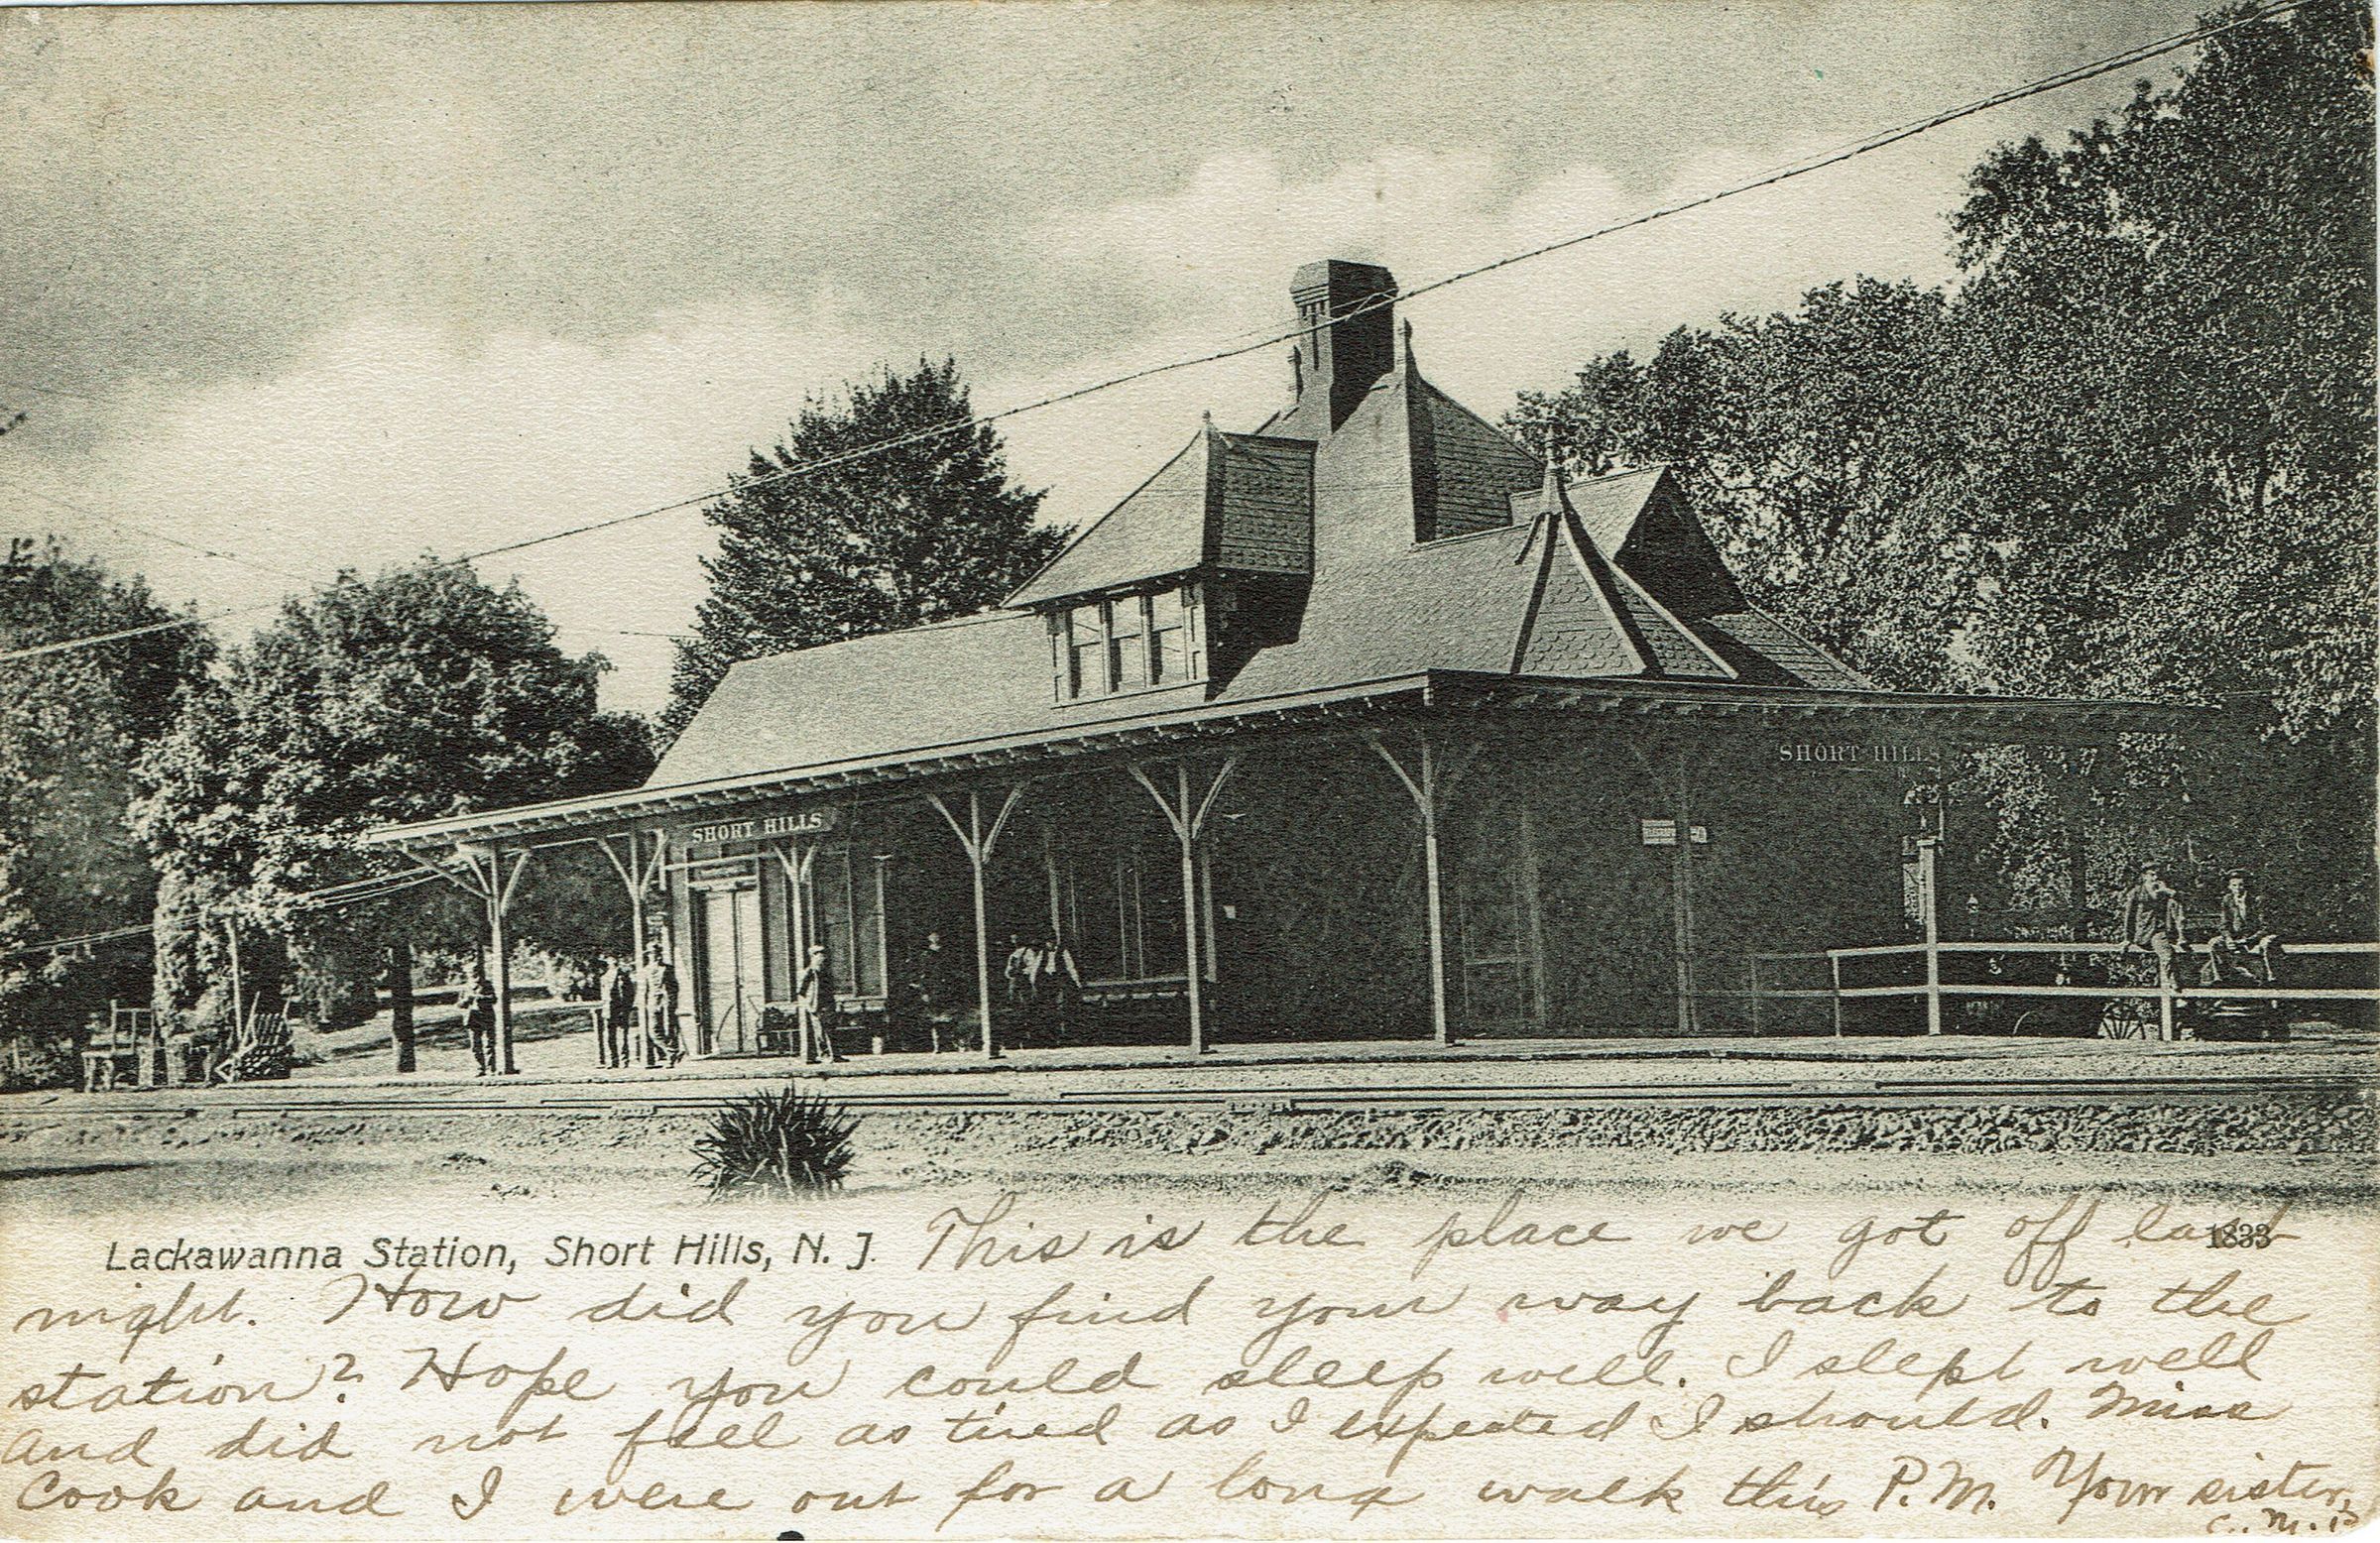 SHORT HILLS
SHORT HILLS
TELEGRAPH
Lackawanna Station, Short Hills, N. J. This is the place we got off last
1833
night. How did you find your way back to the
station? Hope you could sleep well. I slept well
and did not feel as tired as I expected I should. Miss
Cook and I were out for a long walk this P.M. Your sister,
C. M.